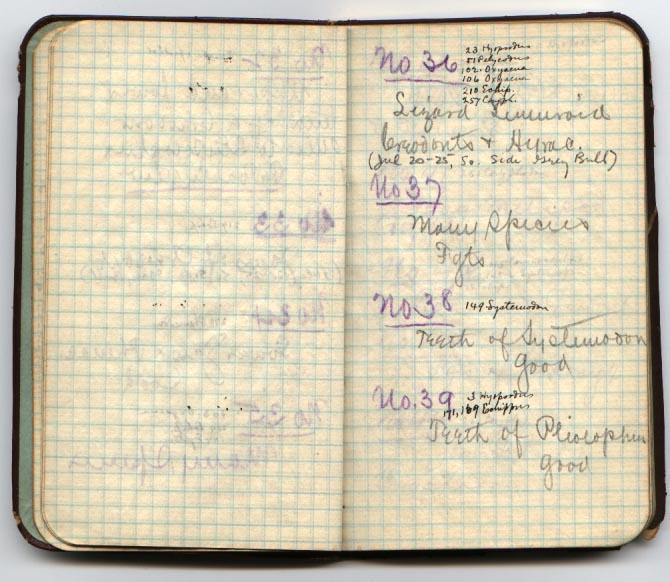 No 36
23 Hyopsodus
51 Pelycodus
102. Oxyaena
106 Oxyaena
210 Eohip.
257 Coryph.
Lizard Lemuroid
Creodonts + Hyrac.
(Jul 20-25, So. Side Grey Bull)
No 37
Many Species
Fgts
No. 38 149 Systemodon
Teeth of Systemodon
good
No. 39 3 Hyopsodus
171, 169 Eohippus
Teeth of Pliolophus
good